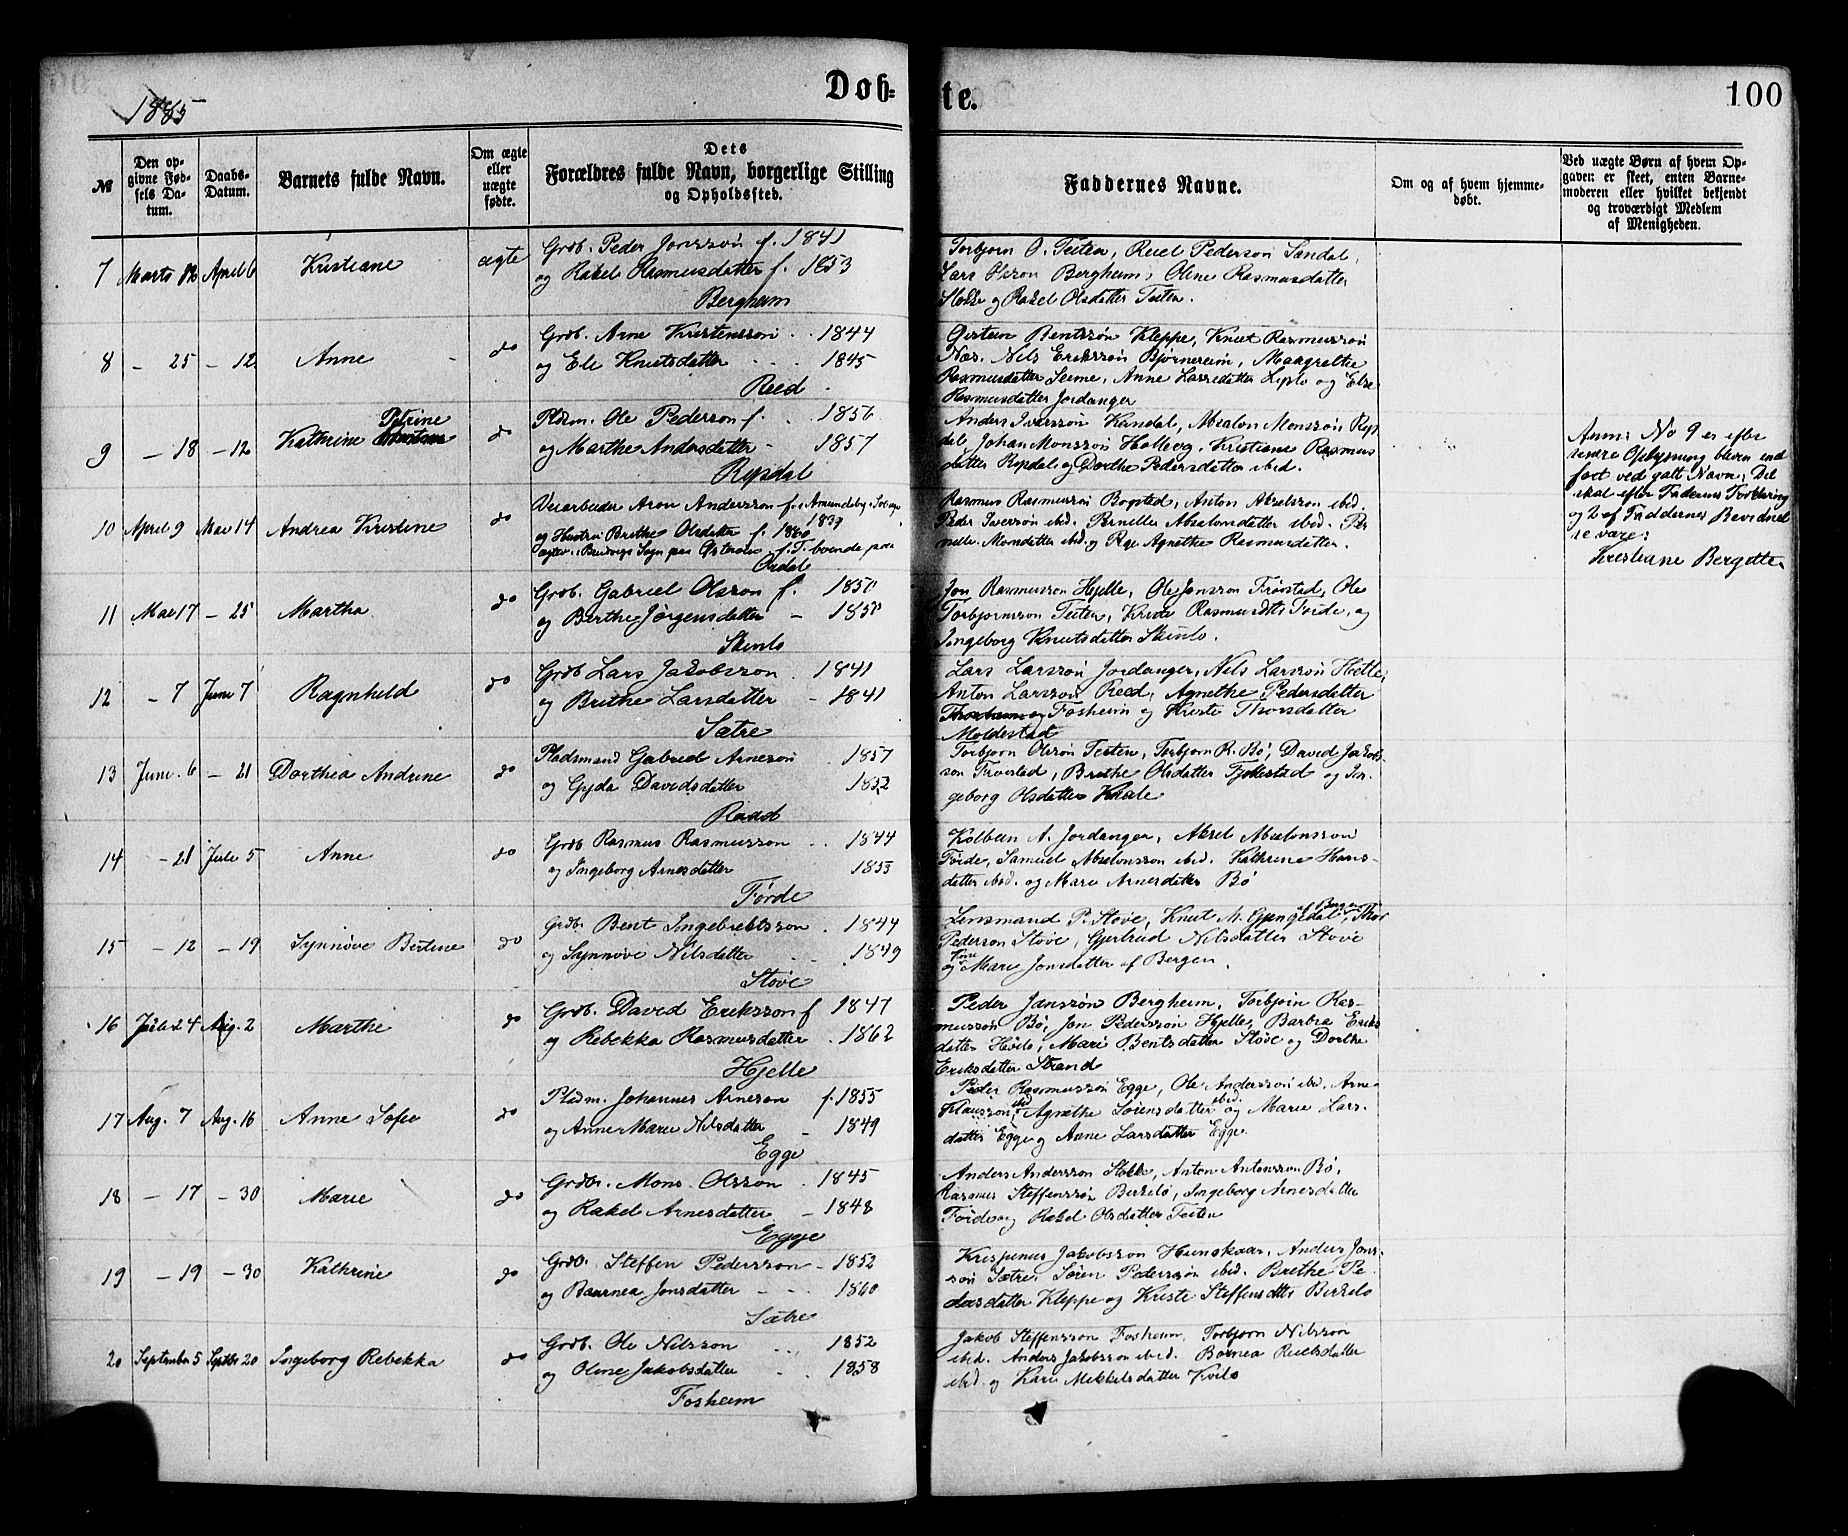 1885
Døb-
te.
100
№
Den op-
givne Fød-
sels Da-
tum.
Daabs-
Datum.
Barnets fulde Navn.
Om ægte
eller
uægte
fødte.
Dets
Forældres fulde Navn, borgerlige Stilling
og Opholdssted.
Faddernes Navne.
Om og af hvem hjemme-
døbt.
Ved uægte Børn af hvem Op-
gaven er skeet, enten Barne-
moderen eller hvilket bekjendt
og troværdigt Medlem
af Menigheden.
7 Marts April 6 Kristiane ægte
Grdb. Peder Jonssøn f. 1841
og Rakel Rasmusdatter f. 1853
Bergheim
Torbjørn O. Teiten, Reiel Pedersøn Sandal,
Lars Olsson Bergheim, Oline Rasmusdatter
Stokke og Rakel Olsdatter Teiten.
8 – 25 – 12. Anne do
Grdb. Arne Kristensson 1844
og Eli Knutsdatter 1845
Reed
Øistein Bentssøn Kleppe, Knut Rasmussøn
Nos. Nils Erikssøn Bjørnereim, Margrethe
Rasmusdatter Seime, Anne Lassedatter og Else
Rasmusdatter Jordanger
9 – 18 – 12 Kathrine Petrine do
Pldsm. Ole Pederson f. 1856
og Marthe Andersdatter – 1857
Rysdal
Anders Iverssøn Kandal, Absalon Monssøn Rys-
dal, Johan Monssøn Hollevg, Kristiane Rasmus
datter Rysdal og Dorthe Pedersdatter ibid.
Anm: No 9 er efter
senere Oplysning bleven ind
ført ved galt Navn; Det
skal efter Faderens Forklaring
og 2 af Faddernes Bevidnel
se være:
Kristiane Bergitte.
10 April 9 Mai 14 Andrea Kristine do
Veiarbeider Aron Andersson f. i Amundeby i
og Hustru Brithe Olsdatter f. 1860 1839
Sogn paa f. T. boende paa
Ordal
Rasmus Rasmussøn Bogstad, Anton Akselsson ibid.
Peder Iversøn ibid. Pernille Absalonsdatter ibid. Per-
nille Monsdatter ibid. og Agnethe Rasmusdatter.
11 Mai 17 – 25 Martha do
Grdb. Gabriel Olsson f. 1850
og Berthe Jørgensdatter – 1850
Skinlo
Jon Rasmusson Hjelle, Ole Jonsson Frøistad, Ole
Torbjørnsson Teiten, Kristi Rasmusdtr Førde, og
Ingeborg Knutsdatter Skinlo.
12 – 7 Juni 7 Ragnhild do
Grdb Lars Jakobsson 1841
og Brithe Larsdatter – 1841
Sætre
Lars Larssøn Jordanger, Nils Larssøn Hotte,
Anton Larsson Reed, Agnethe Pedersdatter
Fosheim og Kristi Thorsdatter
Moldestad
13 Juni. 6 – 21 Dorthea Andrine do
Pladsmand Gabriel Arnesøn 1857
og Gyda Davidsdatter 1852
Raad
Torbjørn Olssøn Teiten, Torbjørn R. Bø, David Jakob-
son Frøistad, Brithe Olsdatter Fjellestad og In-
geborg Olsdatter
14 – 21 Juli 5 Anne do
Grdb Rasmus Rasmusson 1844
og Ingeborg Arnesdatter 1853
Førde
Kolbein A. Jordanger, Aksel Absalonsson
Førde, Samuel Absalonsson ibid. Kathrine Hans-
datter ibid. og Mari Arnesdatter Bø
15 – 12 – 19 Synnøve Bertine do
Grdb. Bent Ingebrektsson 1844
og Synnøve Nilsdatter 1849
Støve
Lensmand P. Støve, Knut M. Gjengedal af Bergen, Thor
Pederson Støve, Gjertrud Nilsdatter Støve
og Mari Jonsdatter af Bergen.
16 Juli 24 Aug. 2 Marthe do
Grdb. David Eriksson f 1847
og Rebekka Rasmusdatter 1862
Hjelle
Peder Janssøn Bergheim, Torbjørn Ras-
musson Bø, Jon Pederssøn Hjelle, Barbra Eriks
datter Høilo, Mari Bentsdatter Støve og Dorthe
Eriksdatter Strand
17 Aug. 7 Aug. 16 Anne Sofie do
Pladm. Johannes Arneson f. 1855
og Anne Marie Nilsdatter – 1849
Egge
Peder Rasmussøn Egge, Ole Anderssøn ibid. Arne
Klausson ibid, Agnethe Sørensdatter ibid. og Marie Lars-
datter Egge og Anne Larsdatter Egge.
18 – 17 – 30 Marie do
Grdbr. Mons Olsson 1845
og Rakel Arnesdatter – 1848
Egge
Anders Andersson Stokke, Anton Antonsson Bø,
Rasmus Steffenssøn Birkelo, Ingeborg Arnesdatter
Førde og Rakel Olsdatter Teiten
19 – 19 – 30 Kathrine do
Grdb. Steffen Pedersson – 1852
og Jonsdatter 1860
Sætre
Krispinus Jakobsson Hunskaar, Anders Jons-
søn Sætre. Søren Pederssøn ibid. Brithe Pe-
dersdatter Kleppe og Kristi Steffensdtr Birkelo
20 September 5 Septbr 20 Ingeborg Rebekka do
Grdb. Ole Nilsson 1852
og Oline Jakobsdatter 1858
Fosheim
Jakob Steffensson Fosheim, Torbjørn Nilsson
ibid. Anders Jakobsson ibid. Reielsdatter
ibid. og Kari Mikkelsdatter Kvilo